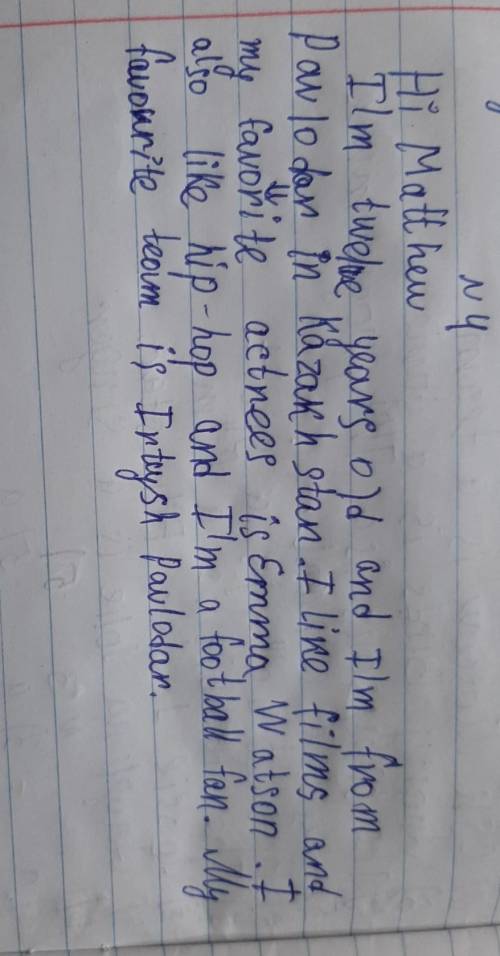 N4
Hi Matthew
I'm twelve years old and I'm from
Pavlodar in Kazakhstan. I like films and
my favorite actrees is Emma Watson. I
also like hip-hop and I'm a football fan. My
favourite team is Irtysh Pavlodar.